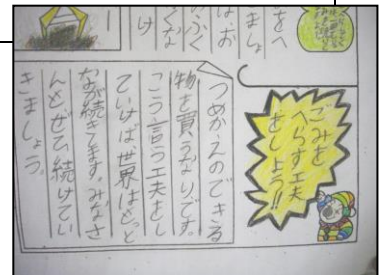 ごみを
へらす工夫
をしよう!!
をへ
ましょ
は、お
ふく
くな
け
つめかえのできる
物を買うなり、です。
こう言う工夫をし
ていけば、世界はもっと
なが続きます。みなさ
んも、ぜひ続けてい
きましょう。